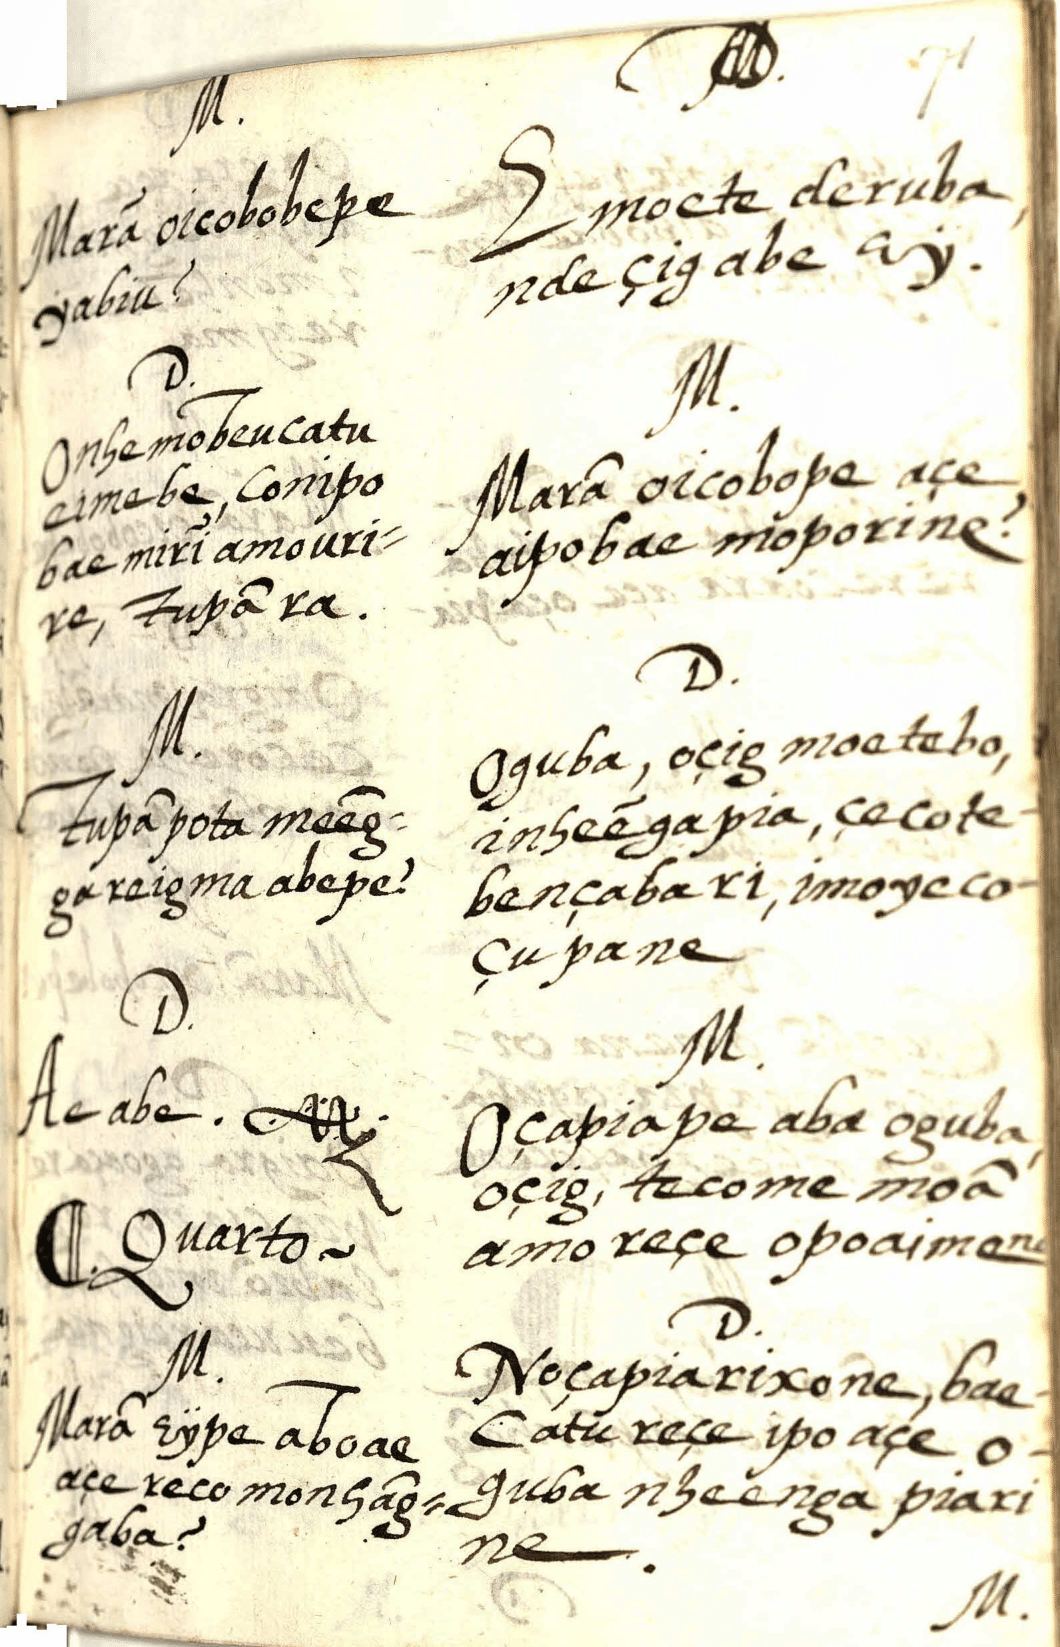 M.
Marã oicobobepe
yabiũ?
D.
Onhemõbeu catu
eimebe, Conipo
bae mirĩ amouri=
re, Tupã ra.
M.
Tupã pota meẽg=
gareigma abepe?
D.
Ae abe.
Quarto~
M.
Marã εÿpe aboae
açe reco monhãg=
gaba?
D.
71
Emoete deruba,
nde çig abe εÿ.
M.
Marã oicobope açe
aipobae moporine?
D.
Oguba, oçig moetebo,
inheẽgapia, çecote-
bençaba ri, imoyeco-
çupane
M.
Oçapiape aba oguba,
oçig, tecome moã
amo reçe opoaimene
D.
Noçapiarixone, bae
Catu reçe ipo açe o-
guba nheenga piari
ne.
M.